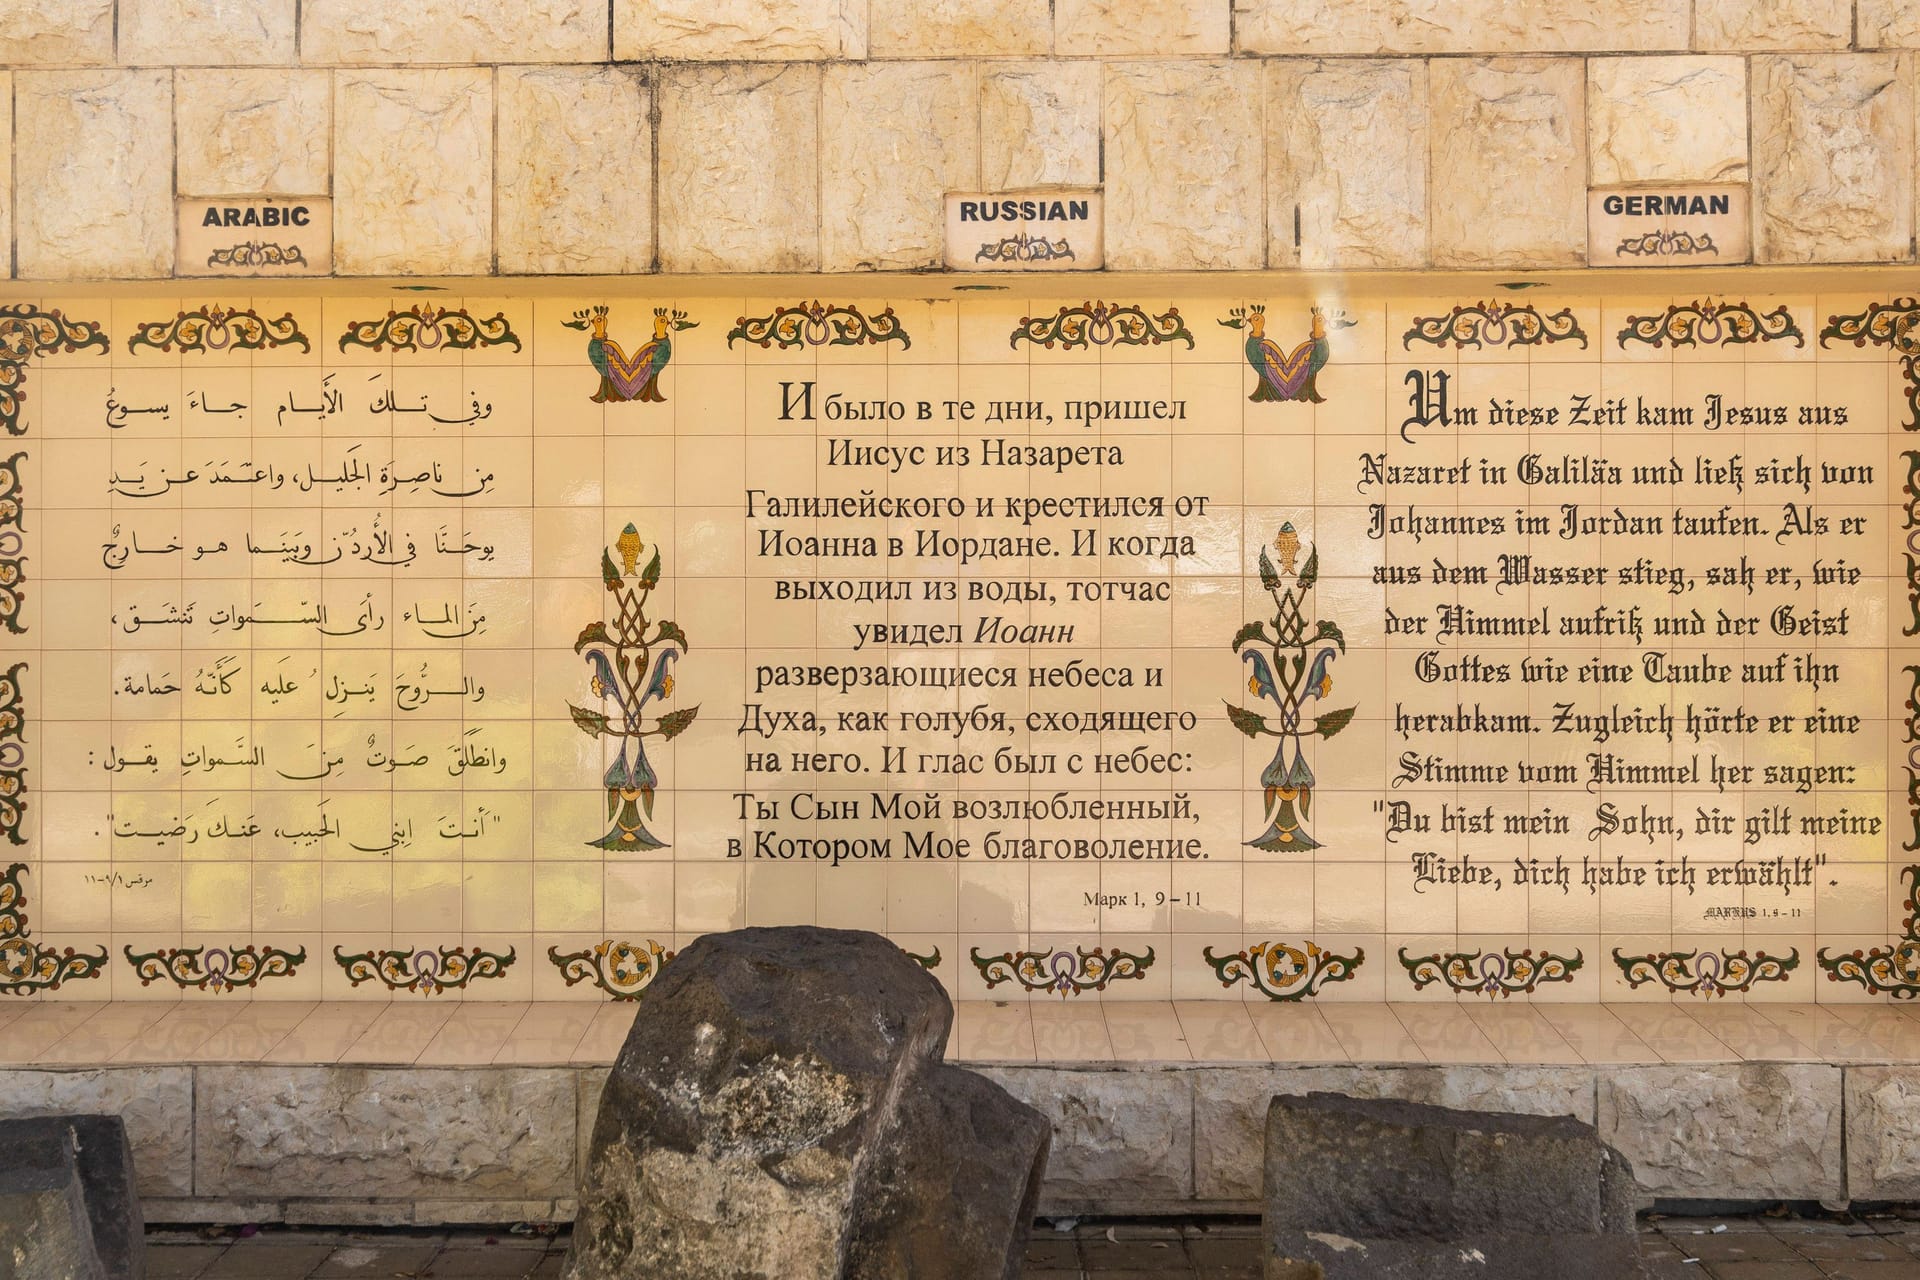 ARABIC
وفي تلكَ الأَيام جاءَ يسوعُ
مِن ناصِرَةِ الجَليل، واعتَمَدَ عن يَدِ
يوحَنَّا في الأُردُنّ وبَينَما هو خارِجٌ
مِنَ الماء رأى السَّمواتِ تَنشَق،
والرُّوحَ يَنزِلُ عَليه كَأَنَّهُ حَمامة.
وانطَلَقَ صَوتٌ مِنَ السَّمواتِ يقول:
"أَنتَ ابني الحَبيب، عَنكَ رَضيت".
مرقس ٩/١-١١
RUSSIAN
И было в те дни, пришел
Иисус из Назарета
Галилейского и крестился от
Иоанна в Иордане. И когда
выходил из воды, тотчас
увидел Иоанн
разверзающиеся небеса и
Духа, как голубя, сходящего
на него. И глас был с небес:
Ты Сын Мой возлюбленный,
в Котором Мое благоволение.
Марк 1, 9-11
GERMAN
Um diese Zeit kam Jesus aus
Nazaret in Galiläa und ließ sich von
Johannes im Jordan taufen. Als er
aus dem Wasser stieg, sah er, wie
der Himmel aufriß und der Geist
Gottes wie eine Taube auf ihn
herabkam. Zugleich hörte er eine
Stimme vom Himmel her sagen:
"Du bist mein Sohn, dir gilt meine
Liebe, dich habe ich erwählt".
MARKUS 1, 9-11